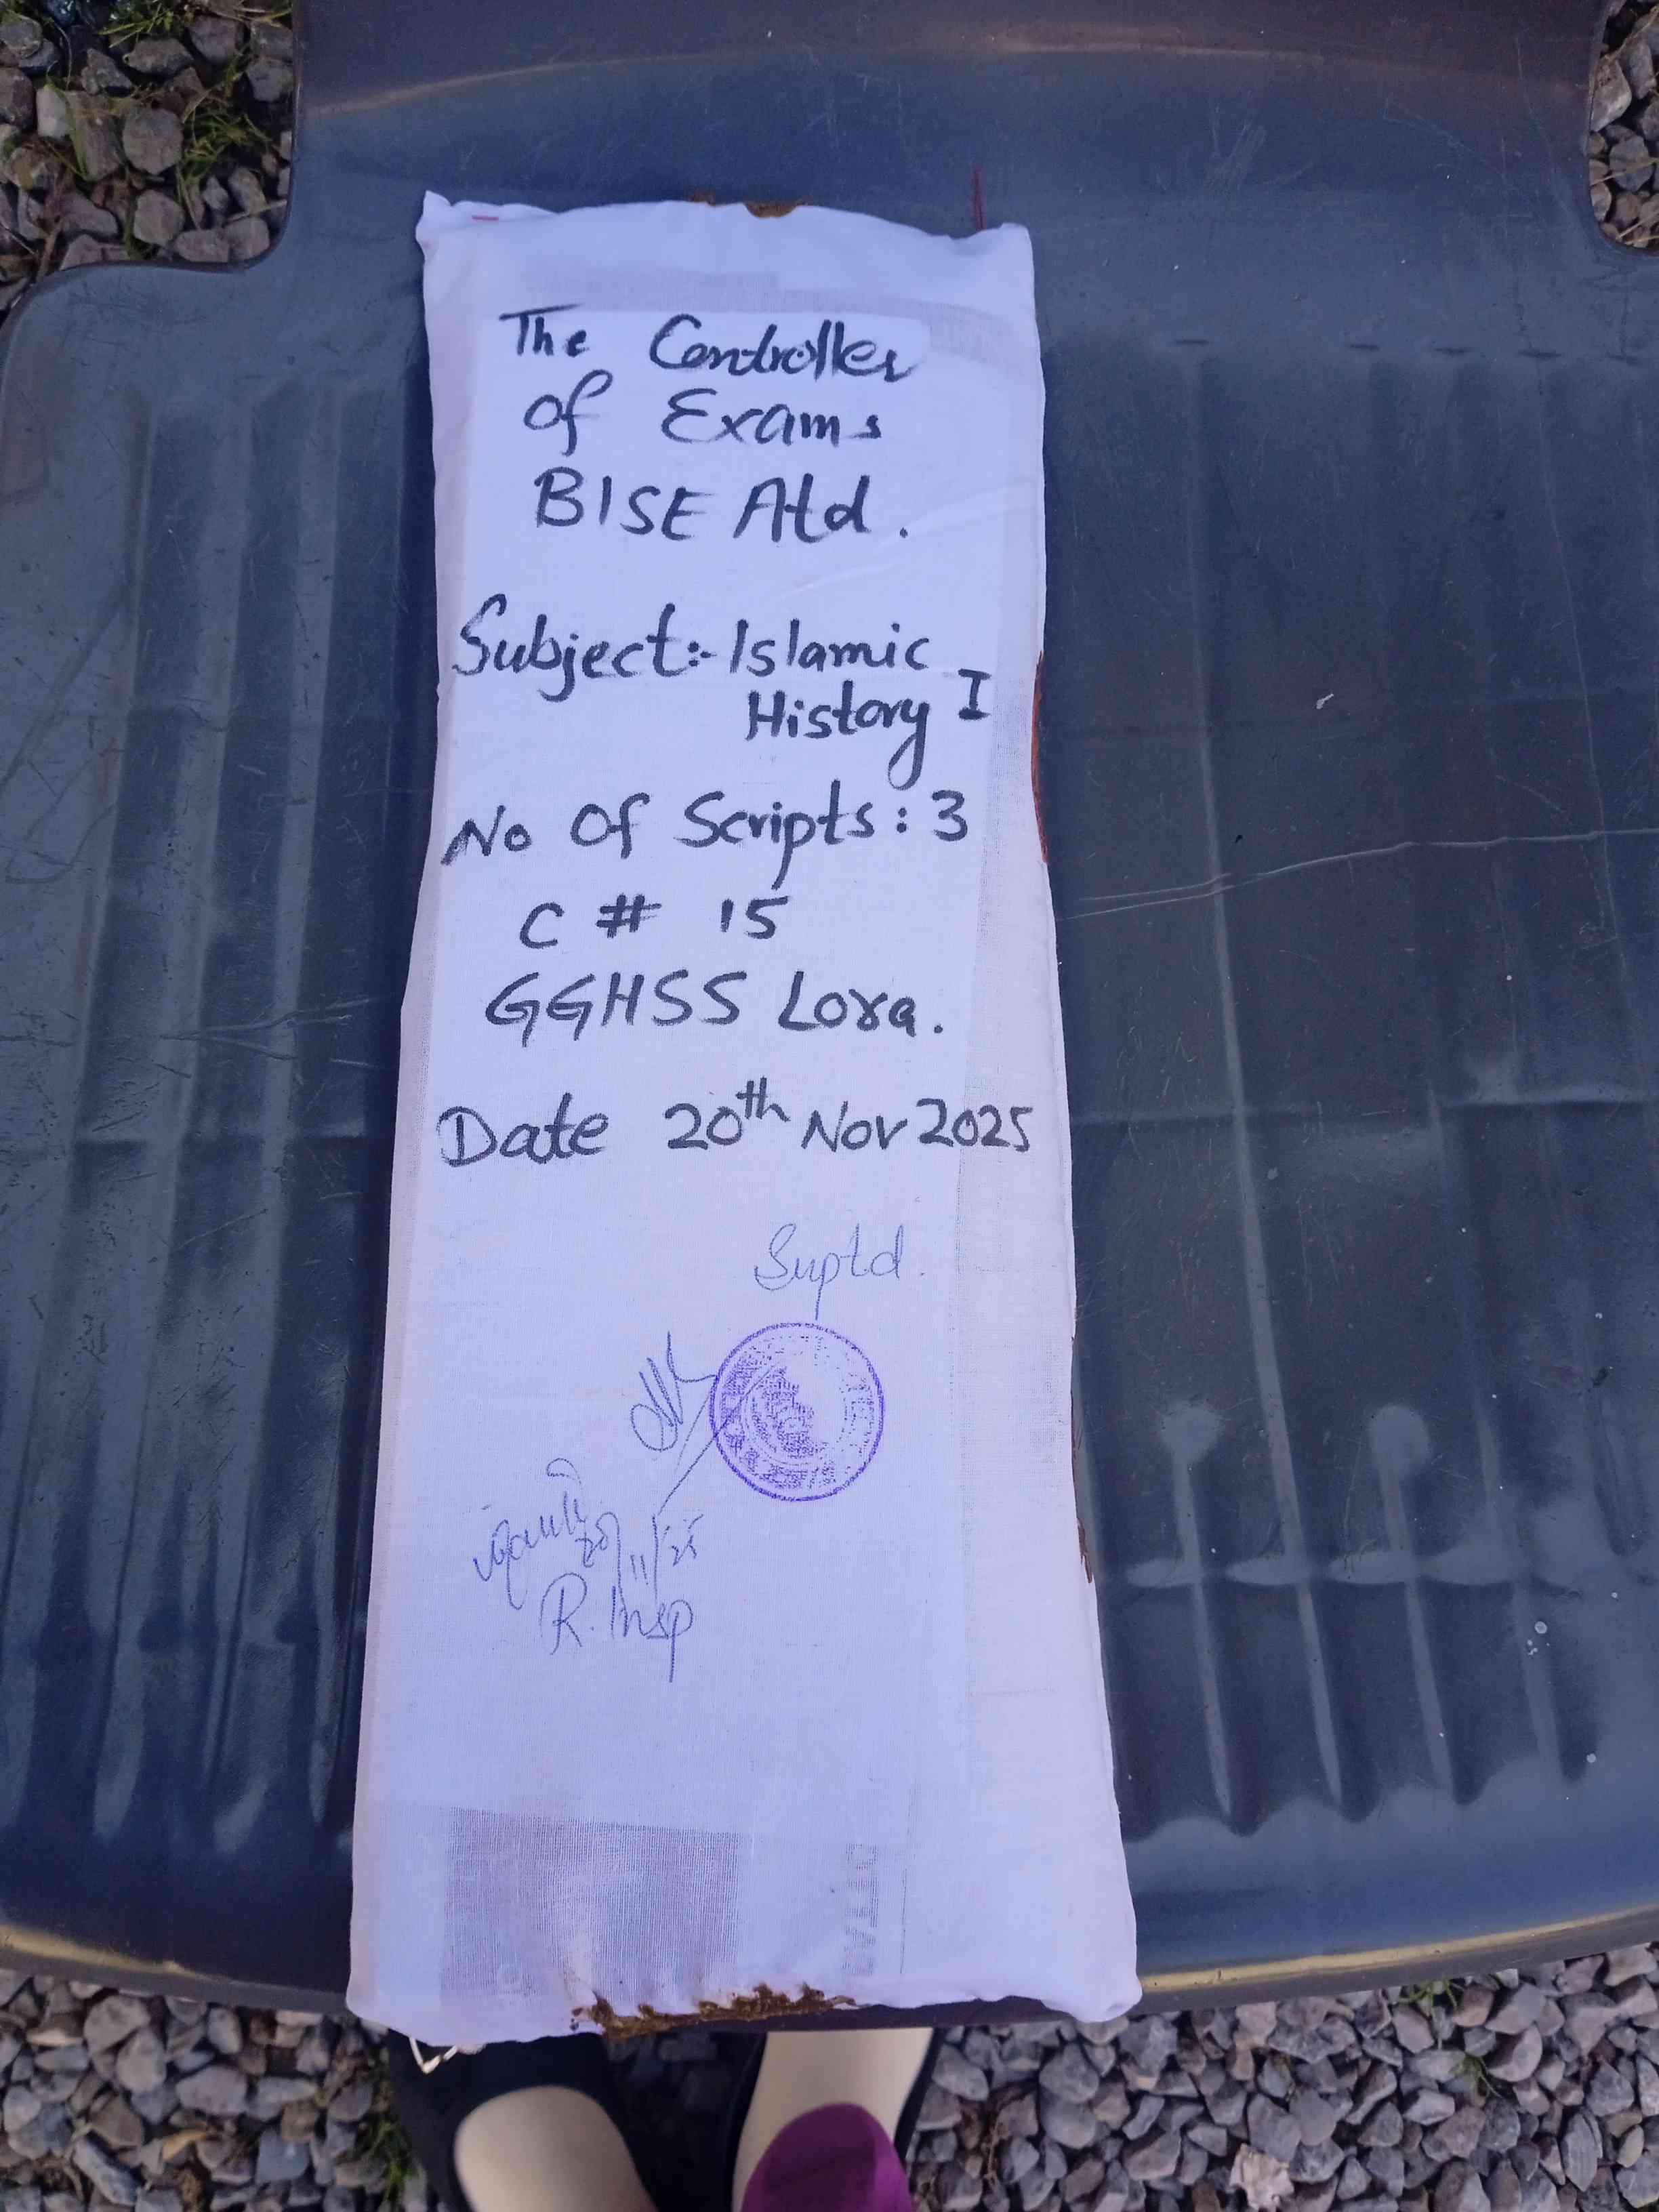 The Controller
of Exams
BISE Atd.
Subject:- Islamic
History I
No Of Scripts : 3
C # 15
GGHSS Lora.
Date 20th Nov 2025
Suptd.
20/11/25
R. Insp